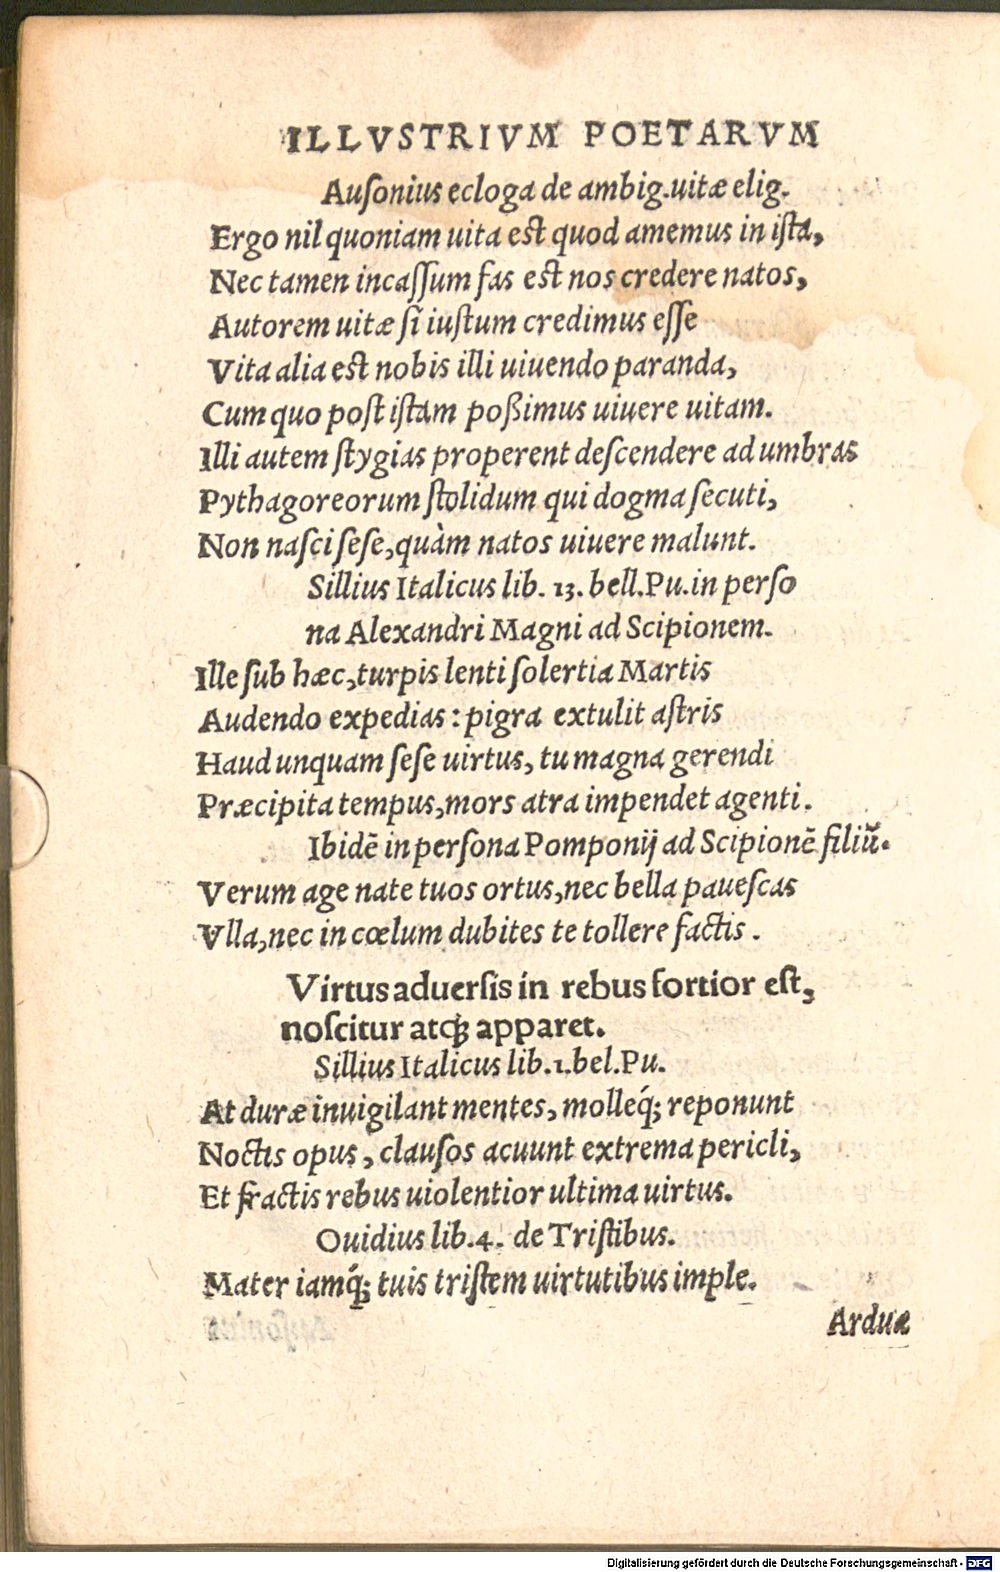 ILLVSTRIVM POETARVM
Auſonius ecloga de ambig.uitæ elig.
Ergo nil quoniam uita eſt quod amemus in iſta,
Nec tamen incaſſum fas eſt nos credere natos,
Autorem uitæ ſi iuſtum credimus eſſe
Vita alia eſt nobis illi uiuendo paranda,
Cum quo poſt iſtam poßimus uiuere uitam.
Illi autem ſtygias properent deſcendere ad umbras
Pythagoreorum ſtolidum qui dogma ſecuti,
Non naſci ſeſe,quàm natos uiuere malunt.
Sillius Italicus lib. 13. bell.Pu.in perſo
na Alexandri Magni ad Scipionem.
Ille ſub hæc,turpis lenti ſolertia Martis
Audendo expedias : pigra extulit aſtris
Haud unquam ſeſe uirtus, tu magna gerendi
Præcipita tempus,mors atra impendet agenti.
Ibidē in perſona Pomponij ad Scipionē filiū.
Verum age nate tuos ortus,nec bella paueſcas
Vlla,nec in cœlum dubites te tollere factis .
Virtus aduerſis in rebus fortior eſt,
noſcitur atq; apparet.
Sillius Italicus lib.1.bel.Pu.
At duræ inuigilant mentes, molleq́; reponunt
Noctis opus, clauſos acuunt extrema pericli,
Et fractis rebus uiolentior ultima uirtus.
Ouidius lib.4. de Triſtibus.
Mater iamq́; tuis triſtem uirtutibus imple.
Ardua
Digitalisierung gefördert durch die Deutsche Forschungsgemeinschaft - DFG